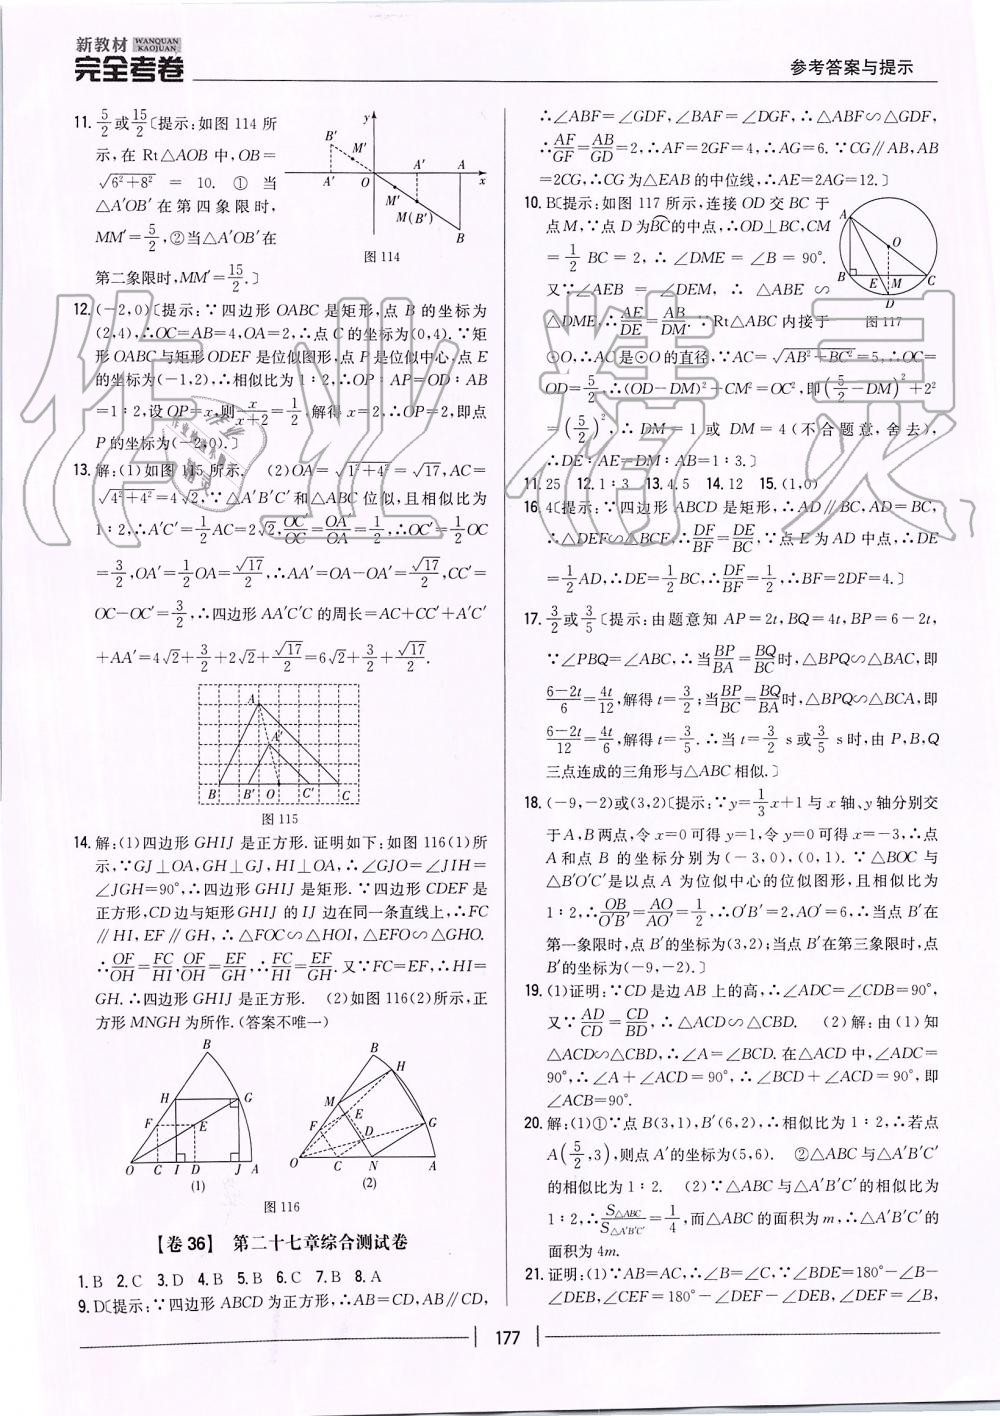 新教材 WANQUAN KAOJUAN
完全考卷
参考答案与提示
11. 5/2或15/2〔提示:如图 114 所
示,在 Rt△AOB 中,OB=
√(6²+8²) = 10. ① 当
△A′OB′在第四象限时,
MM′=5/2,②当△A′OB′在
第二象限时,MM′=15/2.〕
y B′ M′ A′ A A′ O x M′ M(B′) B
图 114
12. (-2,0)〔提示:∵四边形 OABC 是矩形,点 B 的坐标为
(2,4),∴OC=AB=4,OA=2,∴点 C 的坐标为(0,4).∵矩
形 OABC 与矩形 ODEF 是位似图形,点 P 是位似中心,点 E
的坐标为(-1,2),∴相似比为 1∶2,∴OP∶AP=OD∶AB
=1∶2,设 OP=x,则x/(x+2)=1/2,解得 x=2,∴OP=2,即点
P 的坐标为(-2,0).〕
13. 解:(1)如图 115 所示. (2)OA=√(1²+4²)=√17,AC=
√(4²+4²)=4√2,∵△A′B′C′和△ABC 位似,且相似比为
1∶2,∴A′C′=1/2AC=2√2,OC′/OC=OA′/OA=1/2,∴OC′=1/2OC
=3/2,OA′=1/2OA=√17/2,∴AA′=OA-OA′=√17/2,CC′=
OC-OC′=3/2,∴四边形 AA′C′C 的周长=AC+CC′+A′C′
+AA′=4√2+3/2+2√2+√17/2=6√2+3/2+√17/2.
A A′ B B′ O C′ C
图 115
14. 解:(1)四边形 GHIJ 是正方形. 证明如下:如图 116(1)所
示,∵GJ⊥OA,GH⊥GJ,HI⊥OA,∴∠GJO=∠JIH=
∠JGH=90°,∴四边形 GHIJ 是矩形.∵四边形 CDEF 是
正方形,CD 边与矩形 GHIJ 的 IJ 边在同一条直线上,∴FC
∥HI,EF∥GH,∴△FOC∽△HOI,△EFO∽△GHO.
∴OF/OH=FC/HI,OF/OH=EF/GH,∴FC/HI=EF/GH.又∵FC=EF,∴HI=
GH.∴四边形 GHIJ 是正方形. (2)如图 116(2)所示,正
方形 MNGH 为所作.(答案不唯一)
B H G F E O C I D J A (1)
B H M E F D G O C N A (2)
图 116
【卷 36】 第二十七章综合测试卷
1. B 2. C 3. D 4. B 5. B 6. C 7. B 8. A
9. D〔提示:∵四边形 ABCD 为正方形,∴AB=CD,AB∥CD,
∴∠ABF=∠GDF,∠BAF=∠DGF,∴△ABF∽△GDF,
∴AF/GF=AB/GD=2,∴AF=2GF=4,∴AG=6.∵CG∥AB,AB
=2CG,∴CG 为△EAB 的中位线,∴AE=2AG=12.〕
10. B〔提示:如图 117 所示,连接 OD 交 BC 于
点 M,∵点 D 为BC的中点,∴OD⊥BC,CM
=1/2 BC = 2,∴∠DME = ∠B = 90°.
又∵∠AEB = ∠DEM,∴△ABE∽
△DME,∴AE/DE=AB/DM.∵Rt△ABC 内接于
A O B E M C D
图 117
⊙O,∴AC 是⊙O 的直径,∵AC=√(AB²+BC²)=5,∴OC=
OD=5/2,∴(OD-DM)²+CM²=OC²,即(5/2-DM)²+2²
=(5/2)²,∴DM=1 或 DM=4(不合题意,舍去),
∴DE∶AE=DM∶AB=1∶3.〕
11. 25 12. 1∶3 13. 4.5 14. 12 15. (1,0)
16. 4〔提示:∵四边形 ABCD 是矩形,∴AD∥BC,AD=BC,
∴△DEF∽△BCF,∴DF/BF=DE/BC,∵点 E 为 AD 中点,∴DE
=1/2AD,∴DE=1/2BC,∴DF/BF=1/2,∴BF=2DF=4.〕
17. 3/2或3/5〔提示:由题意知 AP=2t,BQ=4t,BP=6-2t,
∵∠PBQ=∠ABC,∴当BP/BA=BQ/BC时,△BPQ∽△BAC,即
(6-2t)/6=4t/12,解得 t=3/2;当BP/BC=BQ/BA时,△BPQ∽△BCA,即
(6-2t)/12=4t/6,解得 t=3/5.∴当 t=3/2 s 或3/5 s 时,由 P,B,Q
三点连成的三角形与△ABC 相似.〕
18. (-9,-2)或(3,2)〔提示:∵y=1/3x+1 与 x 轴、y 轴分别交
于 A,B 两点,令 x=0 可得 y=1,令 y=0 可得 x=-3,∴点
A 和点 B 的坐标分别为(-3,0),(0,1).∵△BOC 与
△B′O′C′是以点 A 为位似中心的位似图形,且相似比为
1∶2,∴OB/O′B′=AO/AO′=1/2,∴O′B′=2,AO′=6,∴当点 B′在
第一象限时,点 B′的坐标为(3,2);当点 B′在第三象限时,点
B′的坐标为(-9,-2).〕
19. (1)证明:∵CD 是边 AB 上的高,∴∠ADC=∠CDB=90°,
又∵AD/CD=CD/BD,∴△ACD∽△CBD. (2)解:由(1)知
△ACD∽△CBD,∴∠A=∠BCD. 在△ACD 中,∠ADC=
90°,∴∠A+∠ACD=90°,∴∠BCD+∠ACD=90°,即
∠ACB=90°.
20. 解:(1)①∵点 B(3,1),B′(6,2),∴相似比为 1∶2,∴若点
A(5/2,3),则点 A′的坐标为(5,6). ②△ABC 与△A′B′C′
的相似比为 1∶2. (2)∵△ABC 与△A′B′C′的相似比为
1∶2,∴S△ABC/S△A′B′C′=1/4,而△ABC 的面积为 m,∴△A′B′C′的
面积为 4m.
21. 证明:(1)∵AB=AC,∴∠B=∠C,∵∠BDE=180°-∠B-
∠DEB,∠CEF=180°-∠DEF-∠DEB,∠DEF=∠B,
177
作业精灵